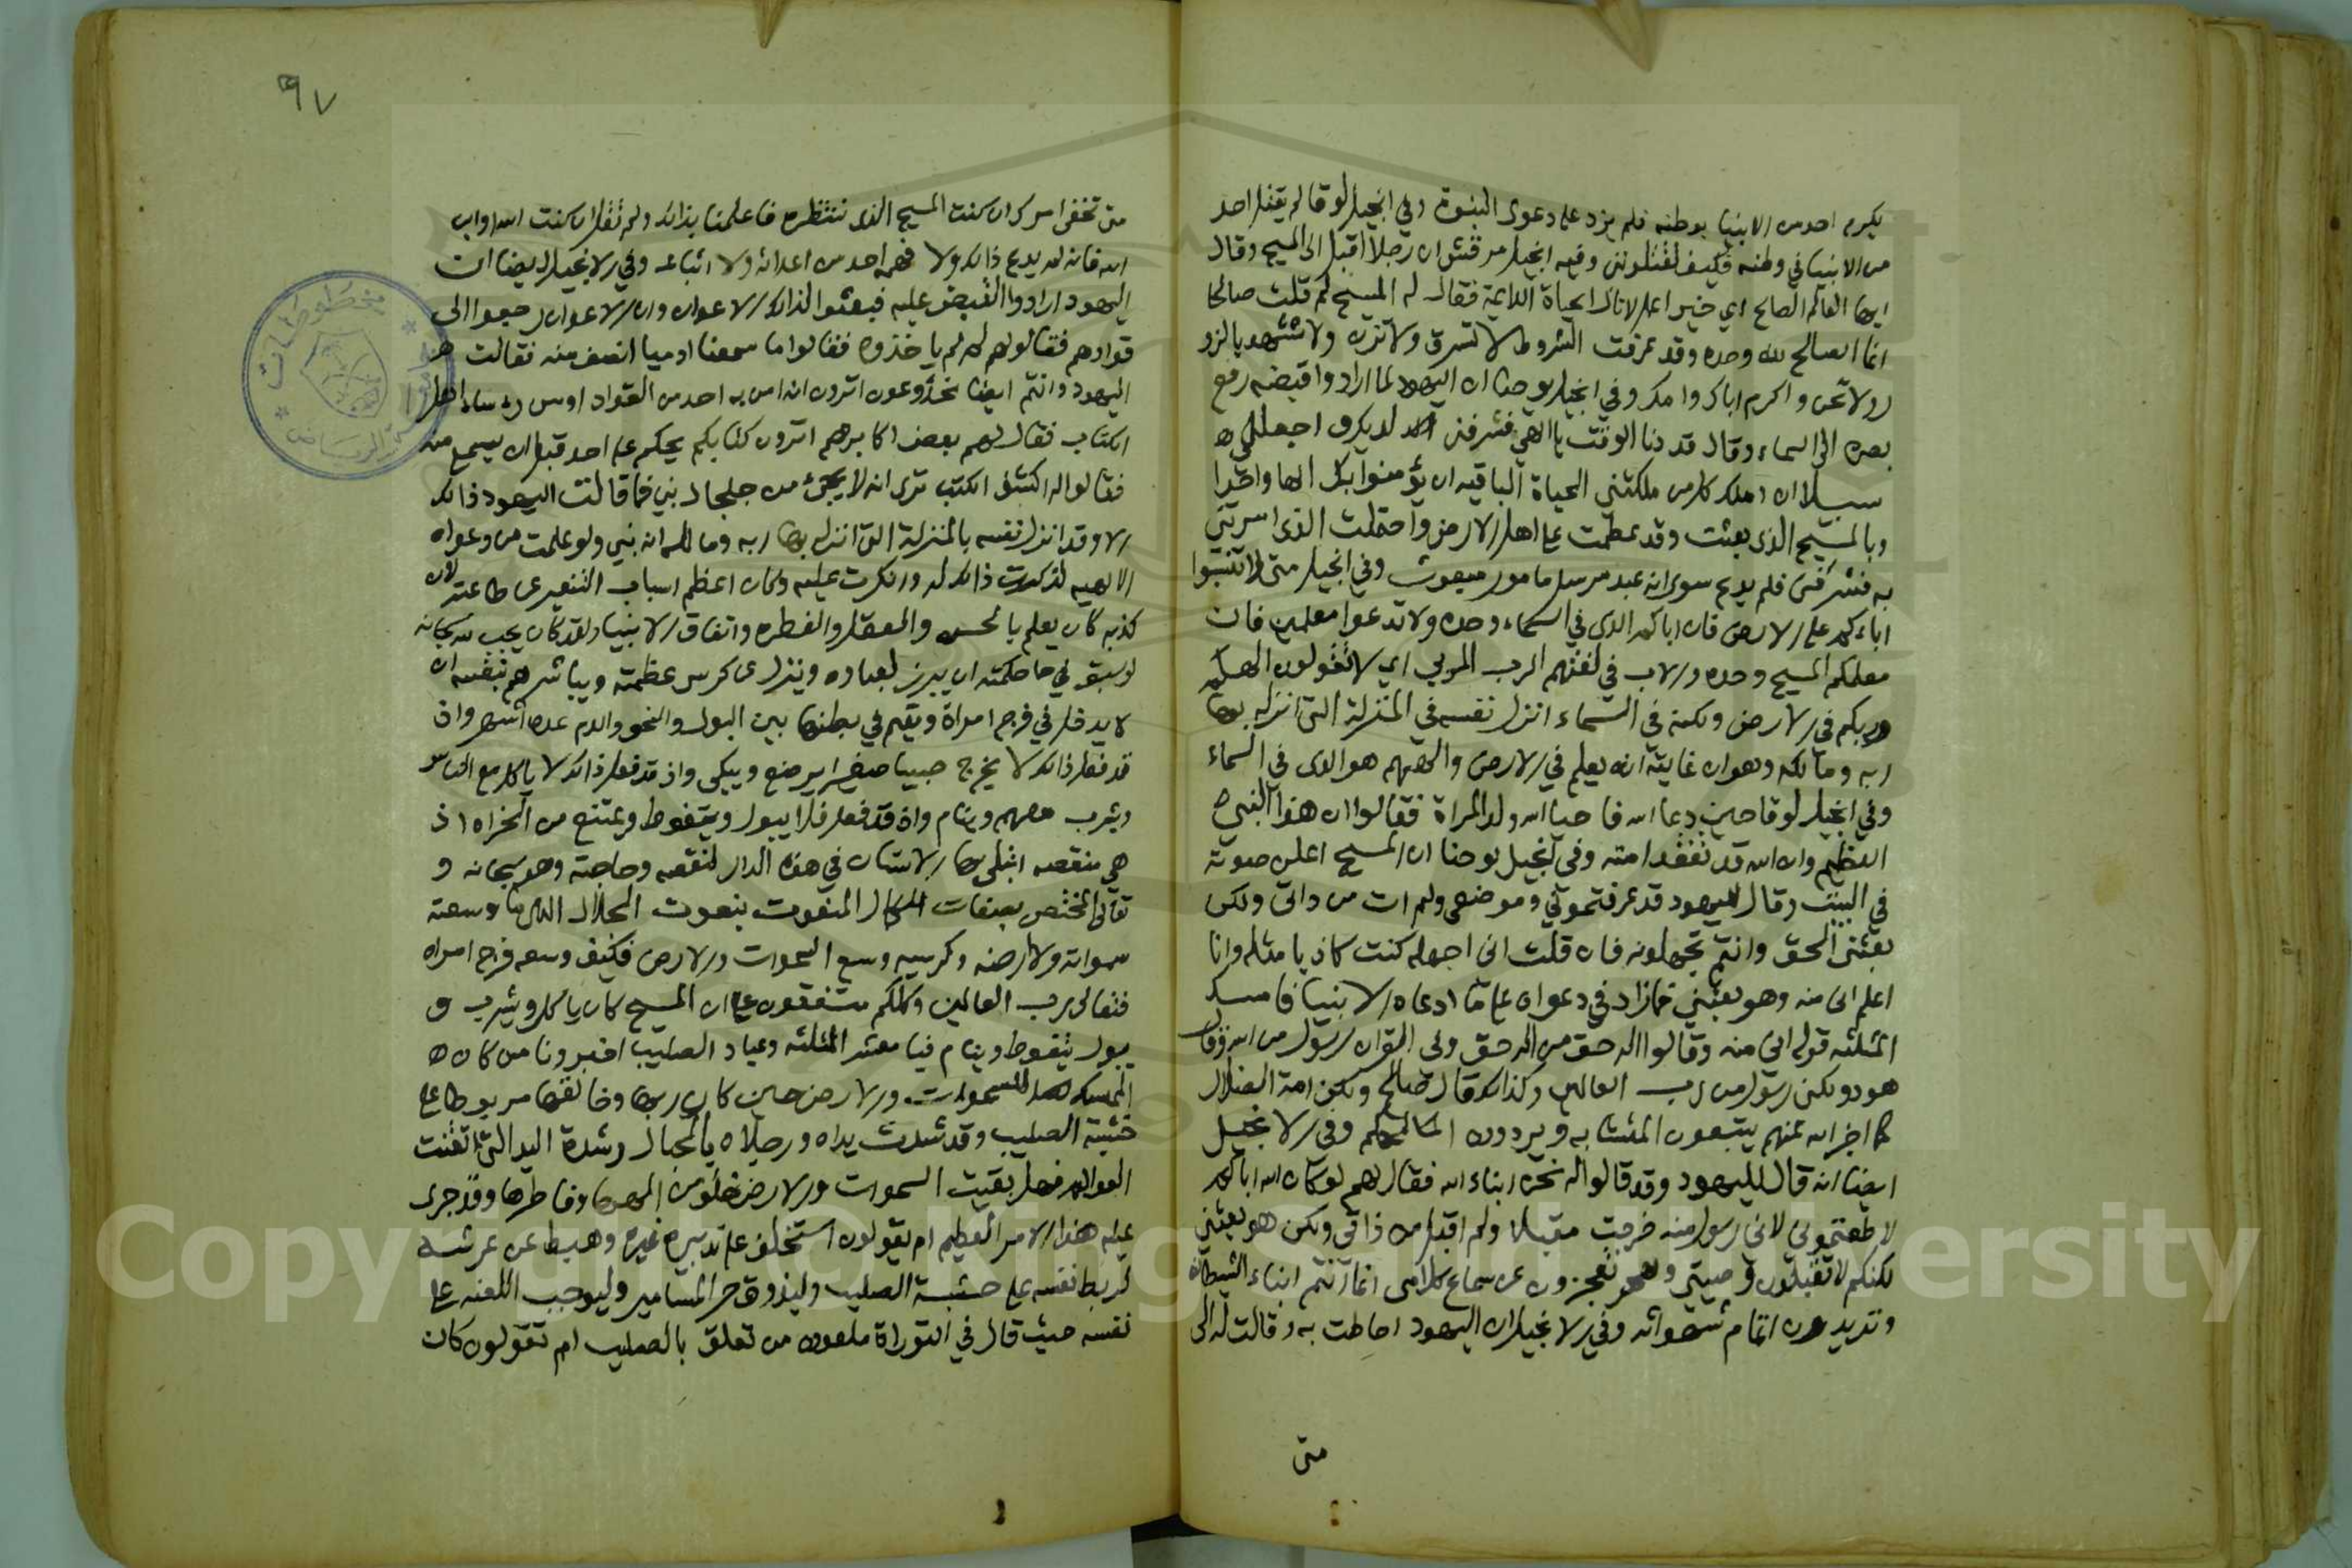 يكرم احد من الانبيا بوطنه فلم يزد على دعوى النبوة وفي انجيل لوقا لم يقتل احد
من الانبيا في وطنه فكيف تقتلونني وفيه انجيل مرقش ان رجلا اقبل الى المسيح وقال
ايها العالم الصالح اي خير اعمل لانال الحياة الدايمة فقال له المسيح لم قلت صالحا
انما الصالح لله وحده وقد عرفت الشروط لا تسرق ولا تزن ولا تشهد بالزو
ر ولا تخن واكرم اباك وامك وفي انجيل يوحنا ان اليهود لما ارادوا قبضه رفع
بصره الى السماء وقال قد دنا الوقت يا الهي فشرفني لديك واجعل لي
سبيلا ان املك كل من ملكتني الحياة الباقيه ان يؤمنوا بك الها واحدا
وبالمسيح الذي بعثت وقد عظمت على اهل الارض واحتملت الذي امرتني
به فشرفني فلم يدع سوى انه عبد مرسل مامور مبعوث وفي انجيل متى لا تنسبوا
اباءكم على الارض فان اباكم الذي في السماء وحده ولا تدعوا معلمين فان
معلمكم المسيح وحده والاب في لغتهم الرب المربي اي لا تقولوا الهكم
وربكم في الارض ولكنه في السماء انزل نفسه في المنزلة التي انزله بها
ربه ومالكه وهو ان غايته انه يعلم في الارض والههم هو الذي في السماء
وفي انجيل لوقا حين دعا الله فاحيا الله ولد المراة فقالوا ان هذا النبي
العظيم وان الله قد تفقد امته وفي انجيل يوحنا ان المسيح اعلن صوته
في البيت وقال لليهود قد عرفتموني وموضعي ولم ات من ذاتي ولكن
بعثني الحق وانتم تجهلونه فان قلت اني اجهله كنت كاذبا مثلكم وانا
اعلم اني منه وهو بعثني فما زاد في دعواه على ما ادعاه الانبيا فامسك
المثلثه قوله اني منه وقالوا اله حق من اله حق وفي القران رسول من الله وقال
هود ولكني رسول من رب العالمين وكذلك قال صالح ولكن امة الضلال
كما اخبر الله عنهم يتبعون المتشابه ويردون المحكم وفي الانجيل
ايضا انه قال لليهود وقد قالوا له نحن ابناء الله فقال لهم لو كان الله اباكم
لاطعتموني لاني رسول منه خرجت مقبلا ولم اقبل من ذاتي ولكن هو بعثني
لكنكم لا تقبلون وصيتي وتعجزون عن سماع كلامي انما انتم ابناء الشيطان
وتريدون اتمام شهواته وفي الانجيل ان اليهود احاطت به وقالت له الى
متى
٩٧
متى تخفي امرك ان كنت المسيح الذي ننتظره فاعلمنا بذلك ولم تقل ان كنت الله او ابن
الله فانه لم يدع ذلك ولا فهمه احد من اعدائه ولا اتباعه وفي الانجيل ايضا ان
اليهود ارادوا القبض عليه فبعثوا لذلك الاعوان وان الاعوان رجعوا الى
قوادهم فقالوا لهم لم لم ياخذوه فقالوا ما سمعنا ادميا انصف منه فقالت
اليهود وانتم ايضا مخدوعون اترون انه امن به احد من القواد او من رؤساء اهل
الكتاب فقال لهم بعض اكابرهم اترون كتابكم يحكم على احد قبل ان يسمع منه
فقالوا له اكشف الكتب ترى انه لا يجئ من جلجال نبي فما قالت اليهود ذلك
الا وقد انزل نفسه بالمنزلة التي انزله بها ربه ومالكه انه نبي ولو علمت من دعواه
الالهيه لذكرت ذلك له وانكرت عليه وكان اعظم اسباب التنفير عن طاعته لان
كذبه كان يعلم بالحس والعقل والفطره واتفاق الانبيا ولقد كان يجب لله سبحانه
لو سبق في حاحكمته ان يبرز لعباده وينزل عن كرسي عظمته ويباشرهم بنفسه ان
لا يدخل في فرج امراة ويقيم في بطنها بين البول والنجو والدم عدة اشهر واذ
قد فعل ذلك لا يخرج صبيا صغيرا يرضع ويبكي واذ قد فعل ذلك لا ياكل مع الناس
ويشرب معهم وينام واذ قد فعل فلا يبول ويتغوط ويمتنع من الخراه اذ
هي منقصه ابتلي بها الانسان في هذه الدار لنقصه وحاجته وهو سبحانه و
تعالى المختص بصفات الكمال المنعوت بنعوت الجلال الذي ما وسعته
سمواته ولا ارضه وكرسيه وسع السموات والارض فكيف وسعه فرج امراه
فتعالى رب العالمين وكلكم متفقون على ان المسيح كان ياكل ويشرب و
يبول يتغوط وينام فيا معشر المثلثه وعباد الصليب اخبرونا من كان
الممسك للسموات والارض حين كان ربها وخالقها مربوطا على
خشبة الصليب وقد شدت يداه ورجلاه بالحبال وشدة اليد التي اتقنت
العوالم فهل بقيت السموات والارض خلوا من الهها وفاطرها وقد جرى
عليه هذا الامر العظيم ام تقولون استخلف على تدبيره غيره وهبط عن عرشه
لربط نفسه على خشبة الصليب وليذوق حر المسامير وليوجب اللعنه على
نفسه حيث قال في التوراة ملعون من تعلق بالصليب ام تقولون كان
Copyright © King Saud University